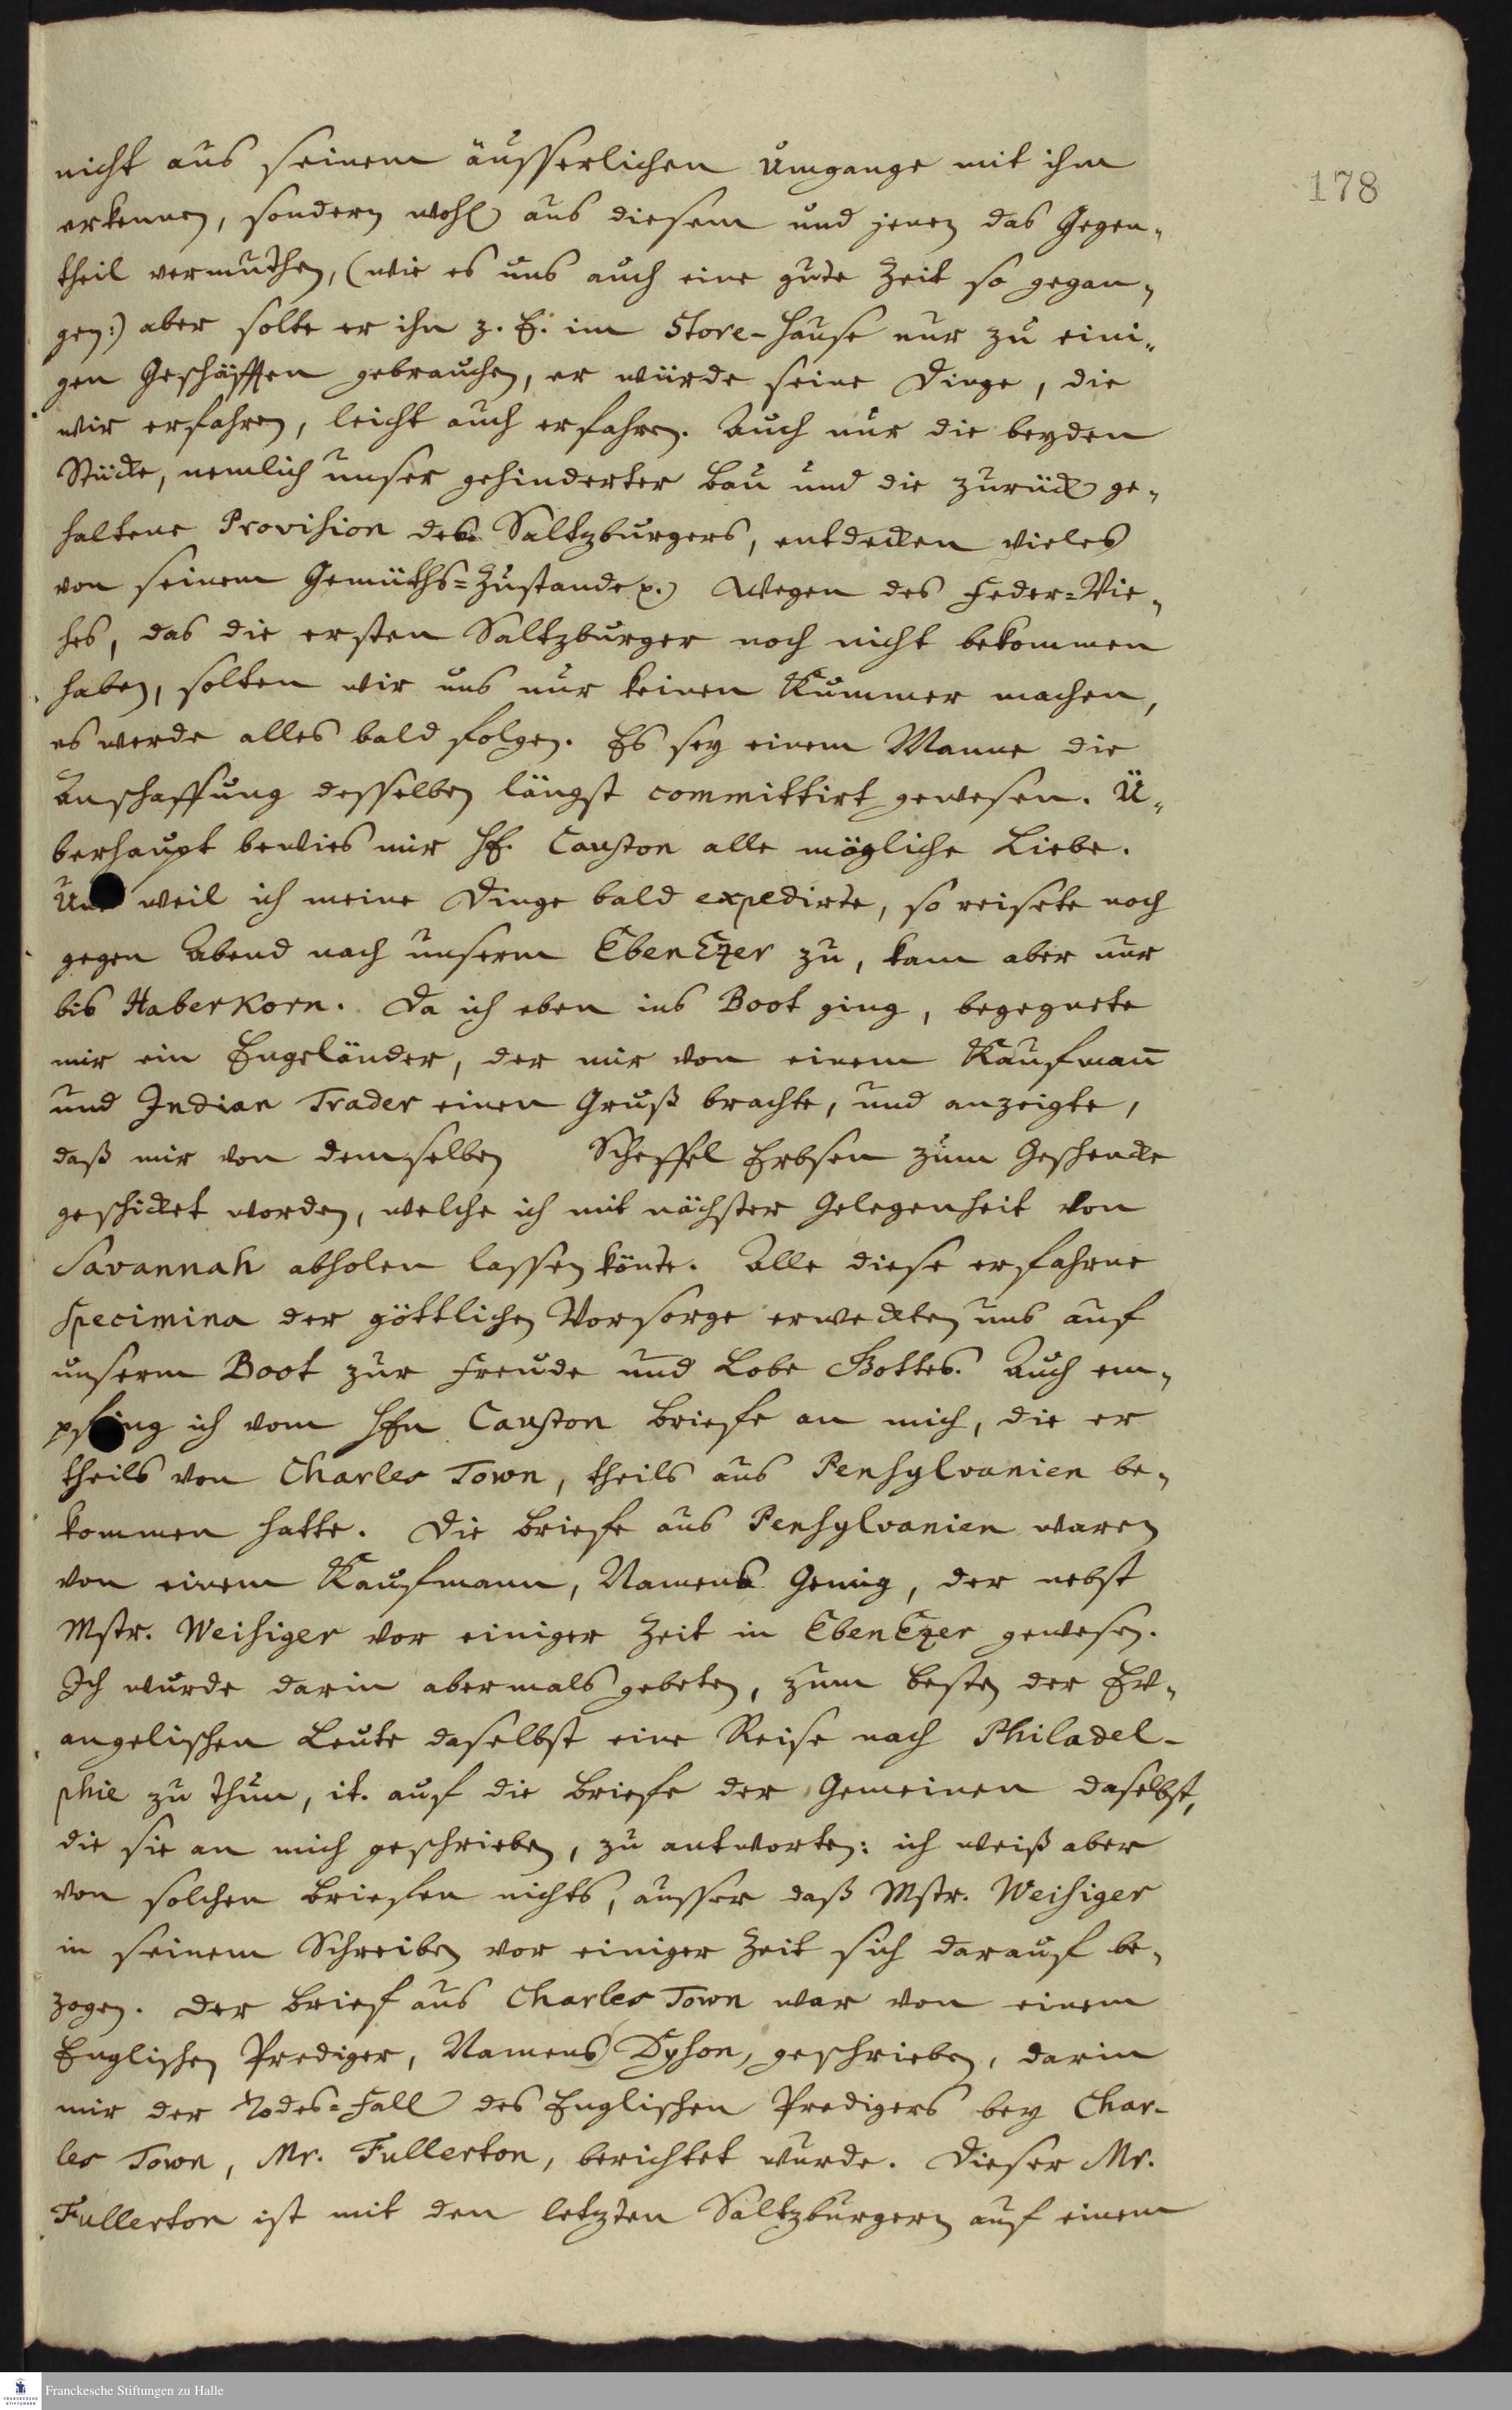 178
nicht aus seinem äusserlichen Umgange mit ihm
erkennen, sondern wohl aus diesem und jenen das Gegen„
theil vermuthen, (wie es uns auch eine gute Zeit so gegan„
gen:) aber solte er ihn z. E. im Store-Hause nur zu eini„
gen Geschäfften gebrauchen, er würde seine Dinge, die
wir erfahren, leicht auch erfahren. Auch nur die beyden
Stücke, nemlich unser gehinderter Bau und die zurück ge„
haltene Provision des Saltzburgers, entdecken vieles
von seinem Gemüths=Zustande p.) Wegen des Feder=Vie„
hes, das die ersten Saltzburger noch nicht bekommen
haben, solten wir uns nur keinen Kummer machen,
es werde alles bald folgen. Es sey einem Manne die
Anschaffung desselben längst committirt gewesen. Ü„
berhaupt bewies mir H. Causton alle mögliche Liebe.
Und weil ich meine Dinge bald expedirte, so reisete noch
gegen Abend nach unserm EbenEzer zu, kam aber nur
bis Haberkorn. Da ich eben ins Boot ging, begegnete
mir ein Engeländer, der mir von einem Kaufmañ
und Indian Trader einen Gruß brachte, und anzeigte,
daß mir von demselben Scheffel Erbsen zum Geschencke
geschicket worden, welche ich mit nächster Gelegenheit von
Savannah abholen lassen könte. Alle diese erfahrne
Specimina der göttlichen Vorsorge erweckten uns auf
unserm Boot zur Freude und Lobe Gottes. Auch em„
pfing ich vom Hn Causton Briefe an mich, die er
theils von Charles Town, theils aus Pensylvanien be„
kommen hatte. Die Briefe aus Pensylvanien waren
von einem Kaufmann, Namens Gemig, der nebst
Mstr. Weisiger vor einiger Zeit in EbenEzer gewesen.
Ich wurde darin abermals gebeten, zum besten der Ev„
angelischen Leute daselbst eine Reise nach Philadel-
phie zu thun, it. auf die Briefe der Gemeinen daselbst,
die sie an mich geschrieben, zu antworten: ich weiß aber
von solchen Briefen nichts, ausser daß Mstr. Weisiger
in seinem Schreiben vor einiger Zeit sich darauf be„
zogen. Der Brief aus Charles Town war von einem
Englischen Prediger, Namens Dyson, geschrieben, darin
mir der Todes=Fall des Englischen Predigers bey Char-
les Town, Mr. Fullerton, berichtet wurde. Dieser Mr.
Fullerton ist mit den letzten Saltzburgern auf einem
Franckesche Stiftungen zu Halle